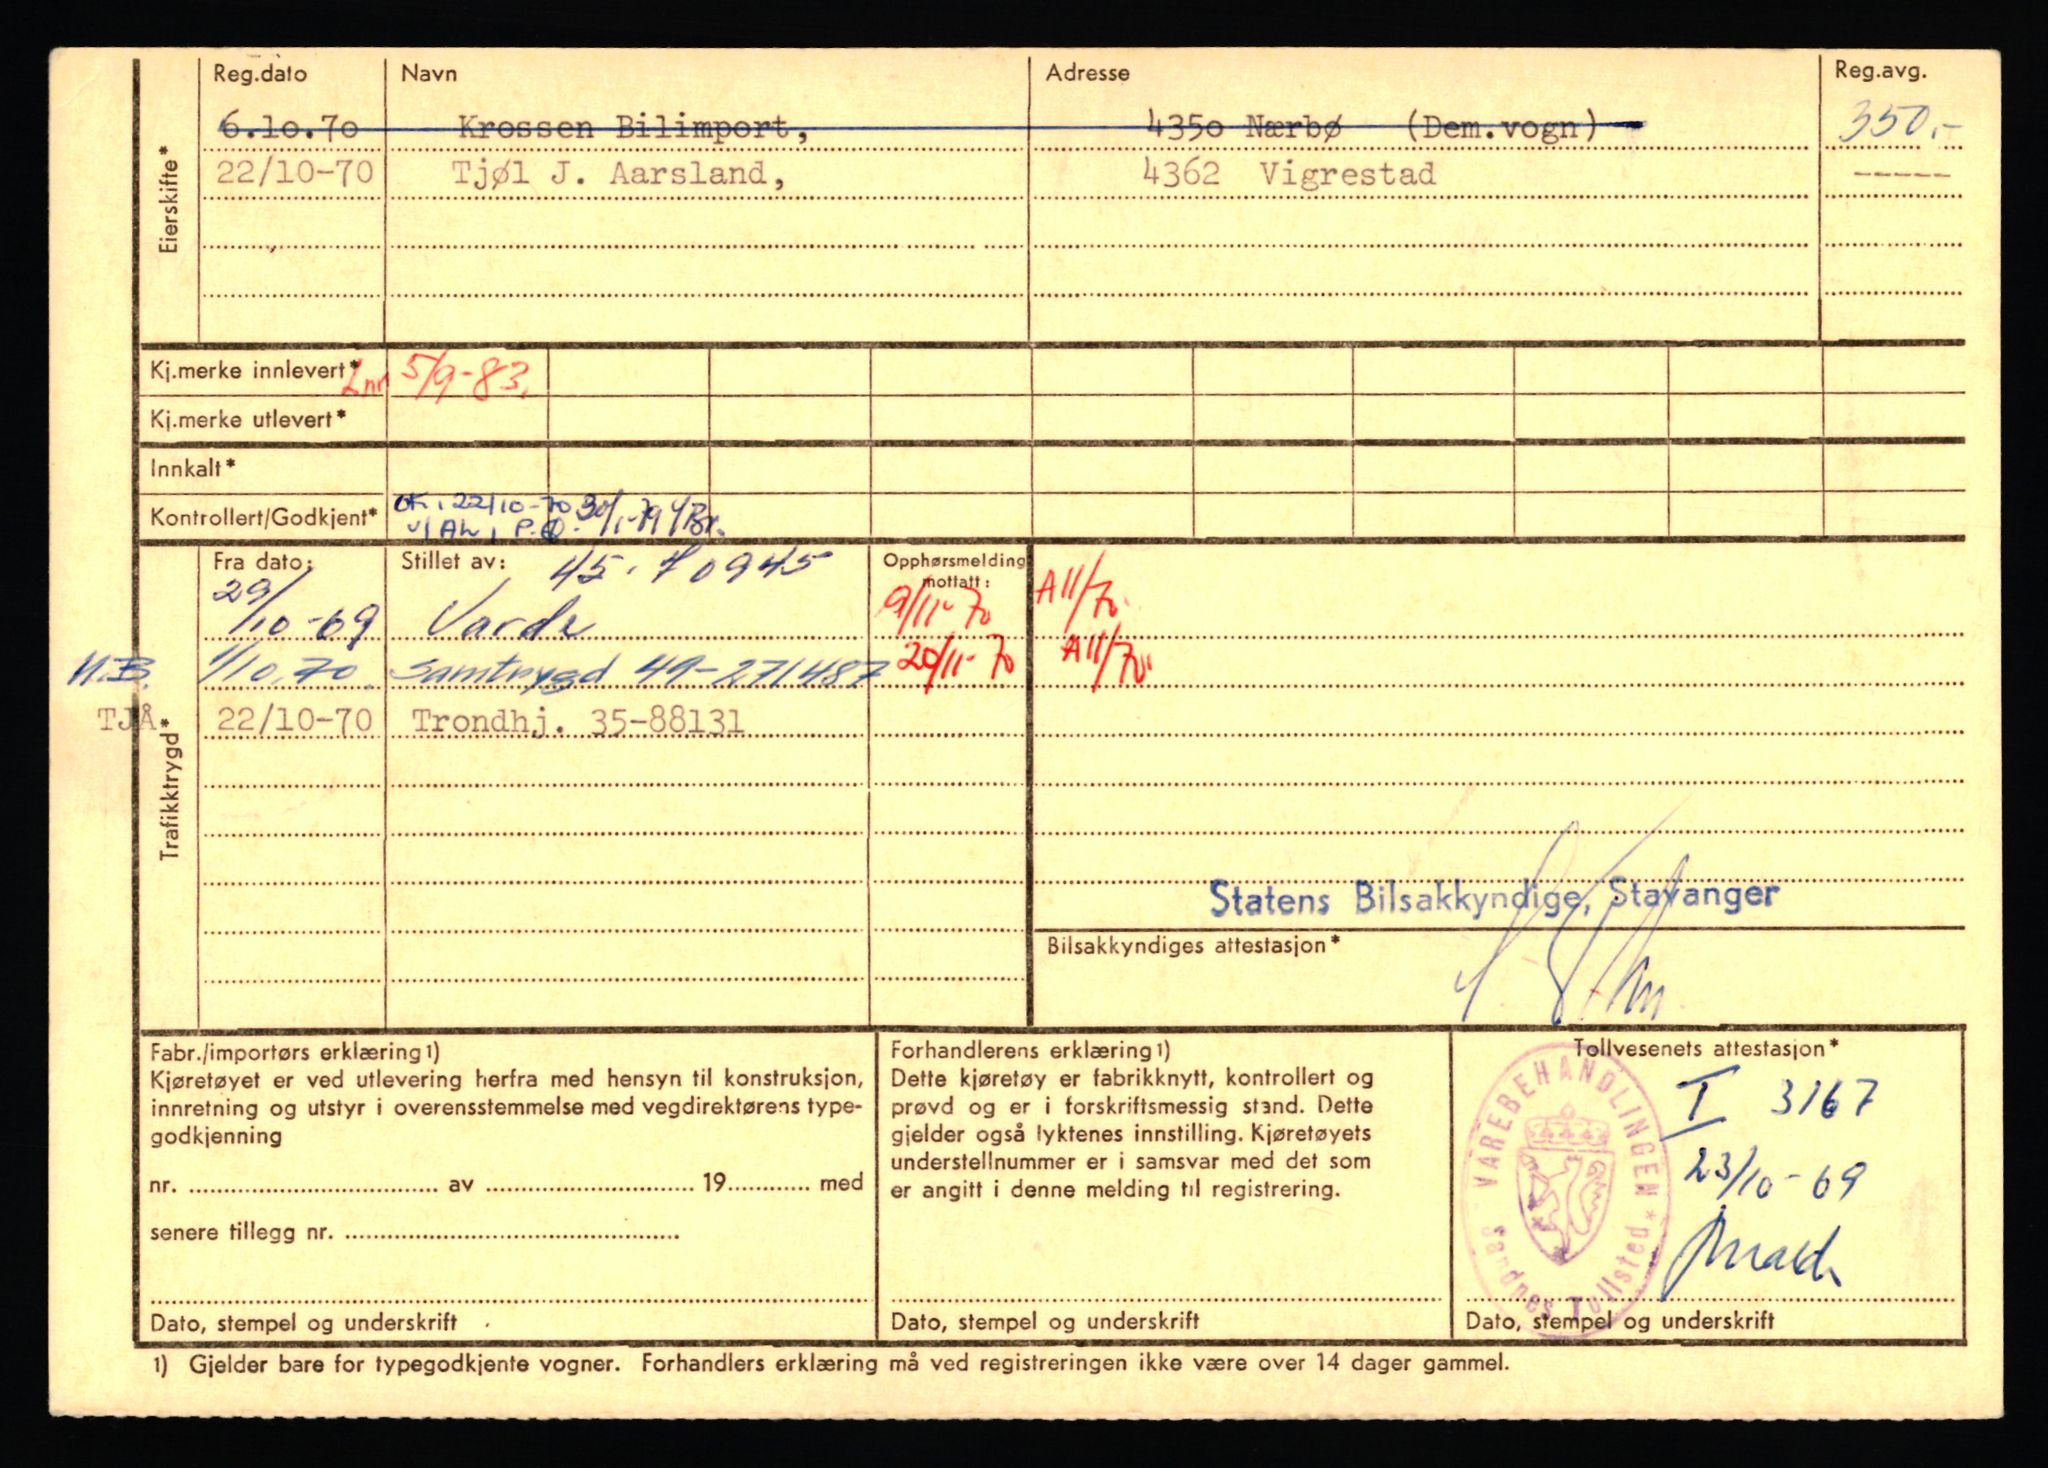 Reg.dato Navn Adresse Reg.avg.
6.10.70 Krossen Bilimport, 4350 Nærbø (Dem.vogn) 350,-
22/10-70 Tjøl J. Aarsland, 4362 Vigrestad -----
Eierskifte*
Kj.merke innlevert* Lnr 5/9-83.
Kj.merke utlevert*
Innkalt*
Kontrollert/Godkjent* OK. 22/10-70 30/1-79
Fra dato: Stillet av: 45. 70945 Opphørsmelding mottatt:
29/10-69 Varde 9/11-70 A11/70.
N.B. 1/10.70. Samtrygd 49-271487 20/11-70 A11/70.
TJÅ 22/10-70 Trondhj. 35-88131
Trafikktrygd*
Statens Bilsakkyndige, Stavanger
Bilsakkyndiges attestasjon*
Fabr./importørs erklæring1)
Kjøretøyet er ved utlevering herfra med hensyn til konstruksjon,
innretning og utstyr i overensstemmelse med vegdirektørens type-
godkjenning
nr. av 19 med
senere tillegg nr.
Dato, stempel og underskrift
Forhandlerens erklæring1)
Dette kjøretøy er fabrikknytt, kontrollert og
prøvd og er i forskriftsmessig stand. Dette
gjelder også lyktenes innstilling. Kjøretøyets
understellnummer er i samsvar med det som
er angitt i denne melding til registrering.
Dato, stempel og underskrift
Tollvesenets attestasjon*
I 3167
23/10-69
VAREBEHANDLINGEN * Sandnes Tollsted *
Dato, stempel og underskrift
1) Gjelder bare for typegodkjente vogner. Forhandlers erklæring må ved registreringen ikke være over 14 dager gammel.